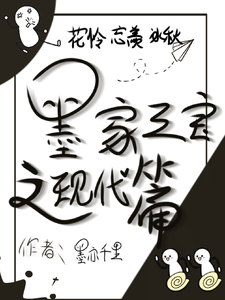 花怜 忘羡 冰秋
墨家三宝
之现代篇
作者：墨亦千里